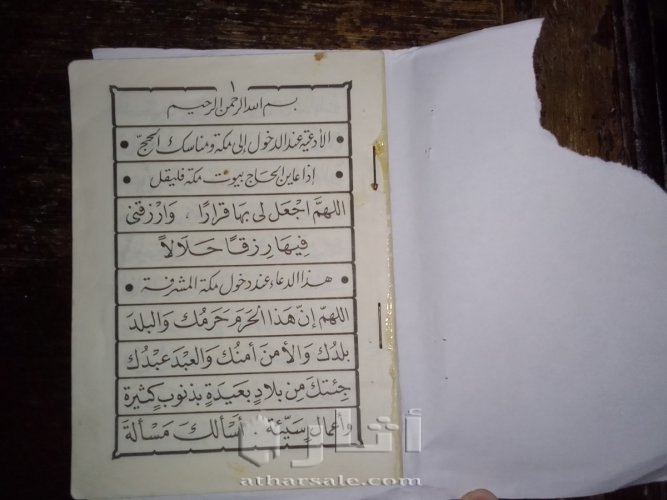 ١
بسم الله الرحمن الرحيم
الأدعية عند الدخول إلى مكة ومناسك الحج
إذا عاين الحاج بيوت مكة فليقل
اللهمَّ اجْعَل لي بها قرارًا ، وَارْزقني
فِيهَا رِزقًا حَلَالاً
هذا الدعاء عند دخول مكة المشرفة
اللهمّ إنّ هَذا الحَرَمَ حَرَمُك وَالبلدَ
بلدُكَ وَالأمنَ أمنُكَ وَالعَبْدَ عبدُكَ
جِئتكَ مِن بلادٍ بَعيدَةٍ بذنوبٍ كثيرة
وأعمالٍ سَيّئة . أسْألكَ مَسْألة
أثار
atharsale.com